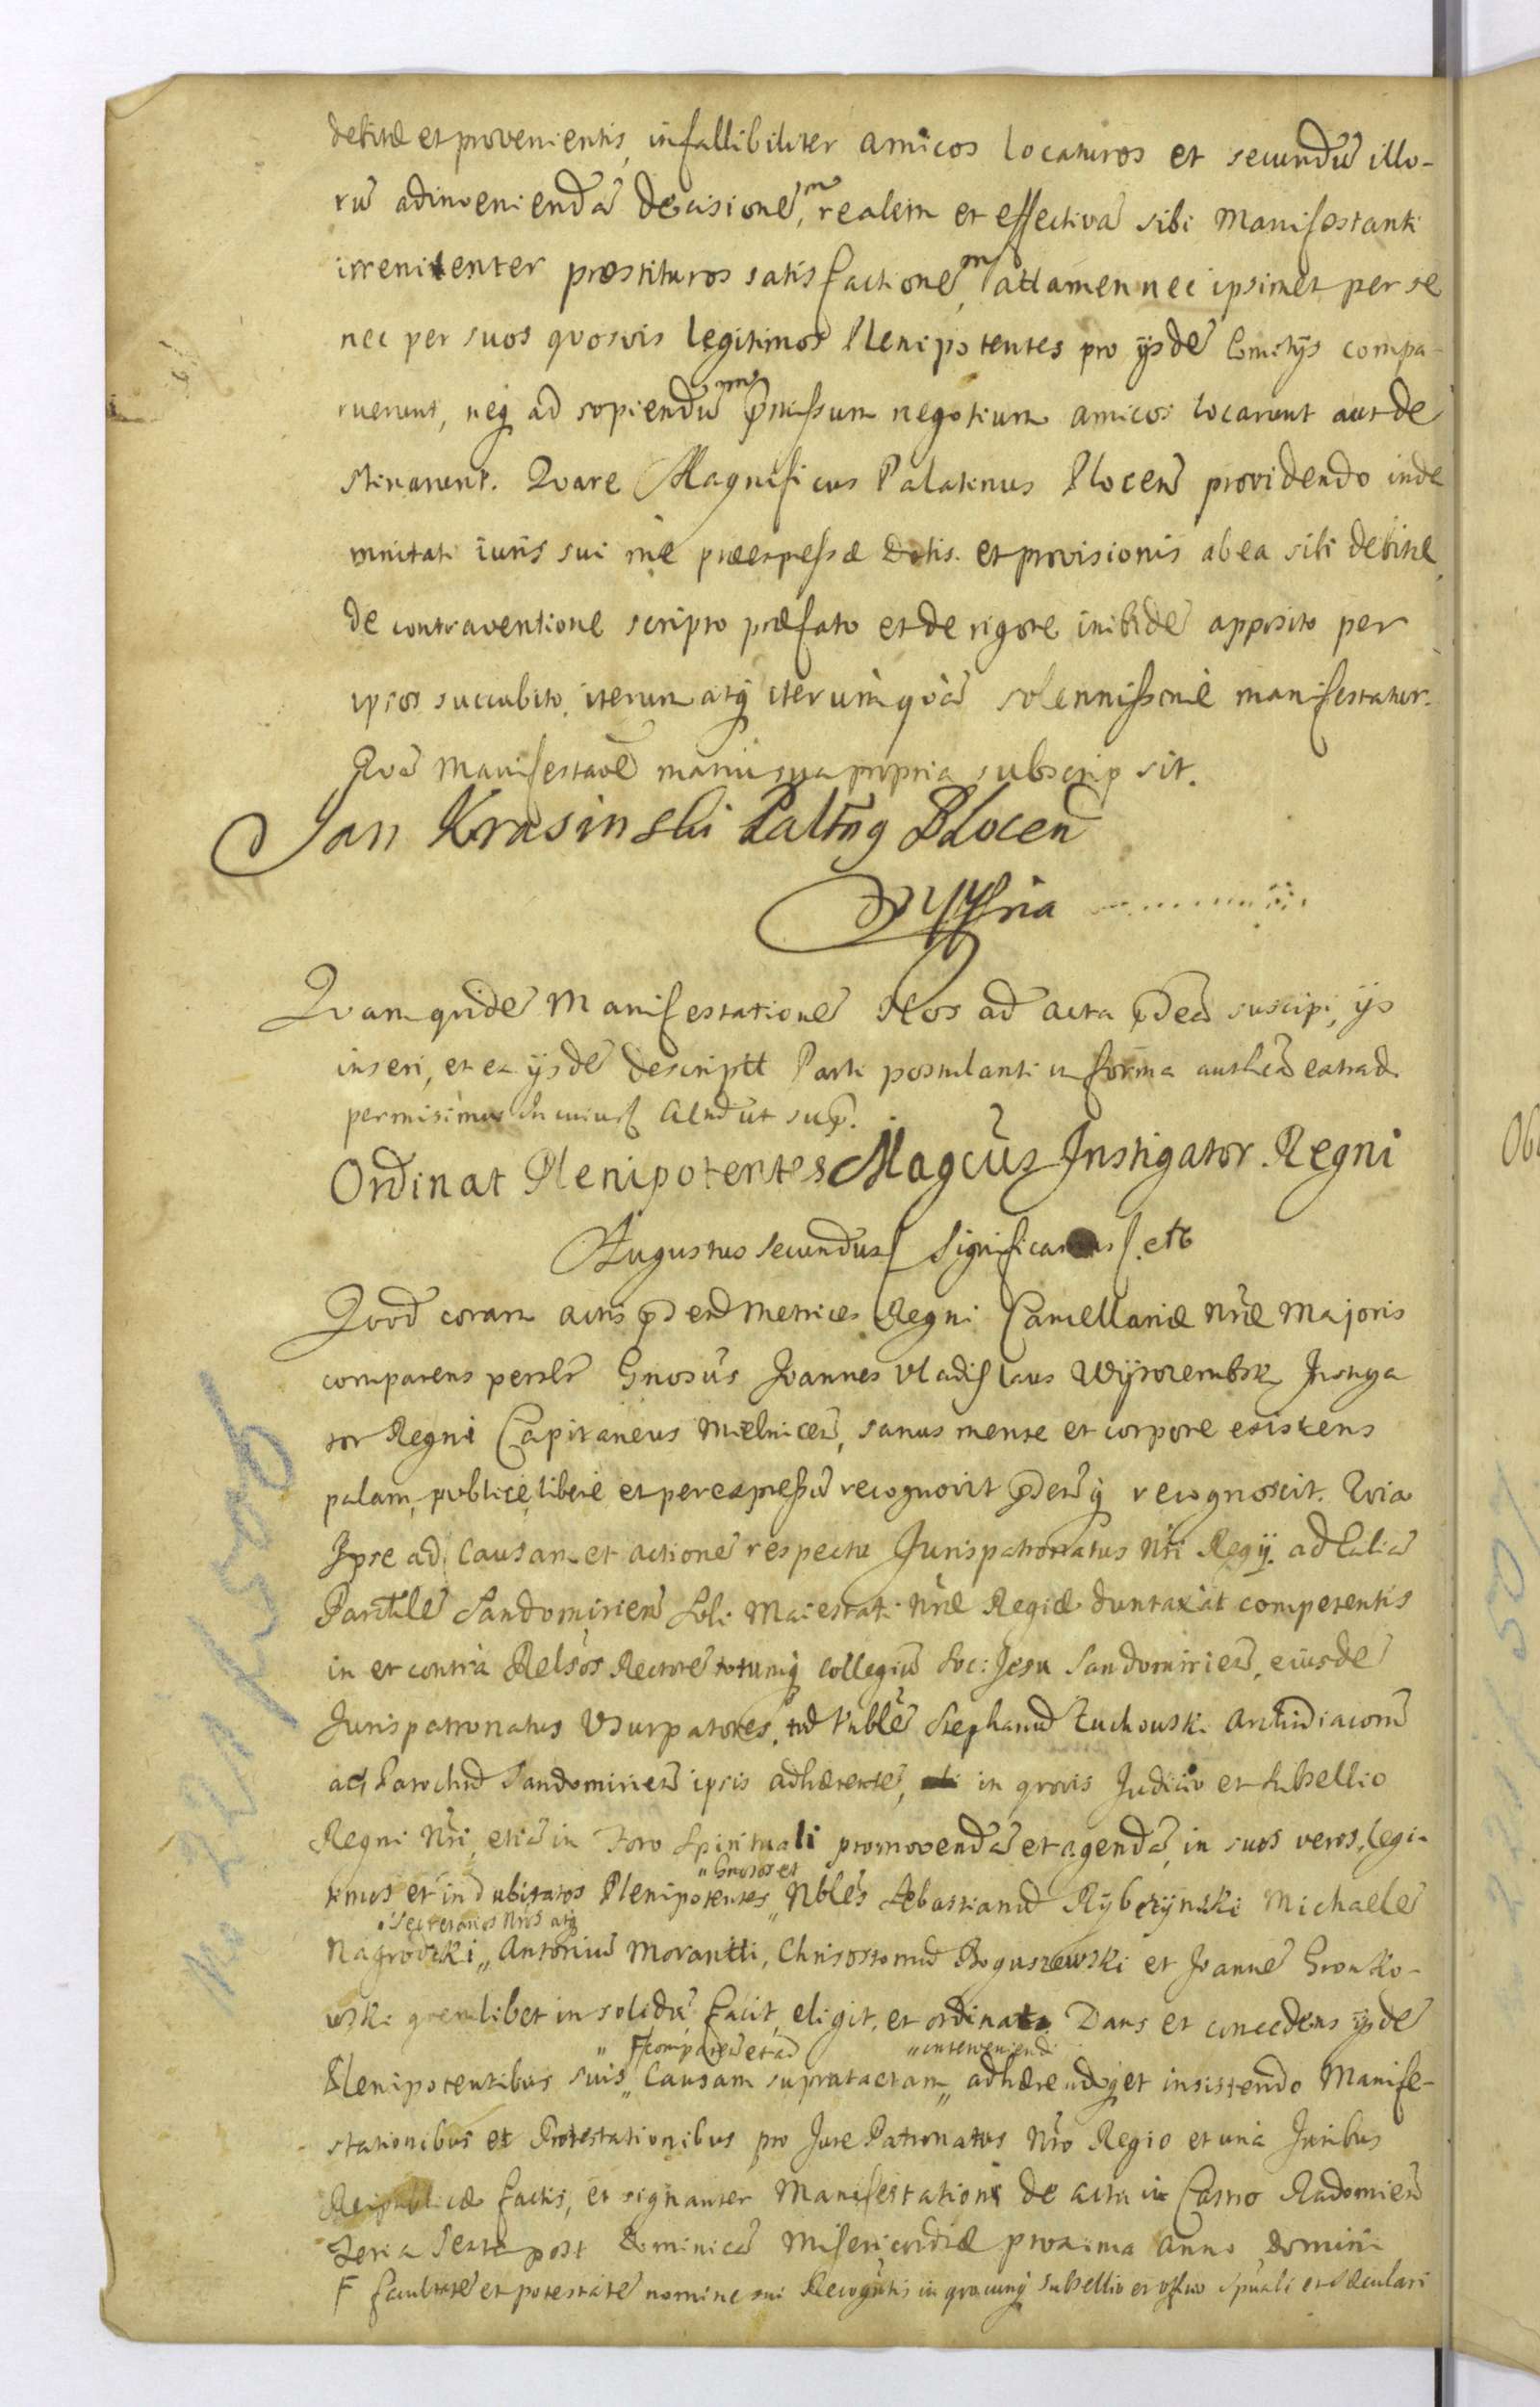 debitæ et provenientis, infallibiliter amicos locaturos et secundũ illo-
rũ adinveniendã decisionẽ, realem et effectivã sibi Manifestanti
irrenitenter præstituros satisfactionẽ, attamen nec ipsimet per se
nec per suos quosvis legitimos Plenipotentes pro ijsdẽ Comitijs compa-
ruerunt, neq ad sopiendũ p̃missum negotium amicos locarunt aut de
stinarunt. Quare Magnificus Palatinus Plocen̄ providendo inde
mnitati iuris sui rñe præexpressæ Dotis et provisionis ab ea sibi debitæ,
de contraventione scripto præfato et de rigore inibidẽ apposito per
ipsos succubito, iterum atq iterum qũa solennissimè manifestatur.
Quã Manifestaõẽ manu sua propria subscripsit.
Jan Krasinski Paltng Plocen̄
mppria
Quam quidẽ Manifestationẽ Nos ad acta p̃dcã suscipi, ijs
inseri, et ex ijsdẽ descriptt Parti postulanti in forma authen̄ extrad
permisimus In cuius Actũ ut sup̃.
Ordinat Plenipotentes Magcūs Instigator Regni
Augustus Secundus Significamus etc
Quod coram actis p̃ntbũ Metrices Regni Cancellariæ Nr̃æ Majoris
comparens perslr̃ Gnosũs Joannes Vladislaus Instiga
tor Regni Capitaneus Mielnicen̄, sanus mente et corpore existens
palam, publicè, liberè et per expressũ recognovit p̃ntbũq recognoscit. Quia
Ipse ad Causam et actionẽ respectu Jurispatronatus Nr̃i Regij ad Ecliã
Parchlẽ Sandomirien̄ Soli Maiestati Nr̃æ Regiæ duntaxat competentis
in et contra Relsõs Rectorẽ totumq Collegiũ Soc: Jesu Sandomirien̄, eiusdẽ
Jurispatronatus Usurpatores, Stephanũ Zuchowski Archidiaconũ
ac Parochũ Sandomirien̄ ipsis adhærentẽ, in qvovis Judicio et Subsellio
Regni Nr̃i, etiã in Foro Spirituali promovendã et agendã, in suos veros, legi-
" Gnosos et
timos et indubitatos Plenipotentes " Nblẽs Sebastianũ Rybczynski Michaelẽ
" Secretarios Nr̃os atq
Nagrodzki " Antoniũ Morantti, Chrisostomũ Boguszewski et Joannẽ Gronko-
wski quemlibet in solidũ facit, eligit, et ordinat. Dans et concedens ijsdẽ
" F comparẽdi et ad " interveniendi
Plenipotentibus suis " Causam supratactam " adhærendoq et insistendo Manife-
stationibus et Protestationibus pro Jure Patronatus Nr̃o Regio et unà Juribus
Reipublicæ factis, et signanter Manifestationi de acta in Castro Radomien̄
Feria Sexta post Dominicã Misericordiæ proxima Anno Domini
F facultatẽ et potestatẽ nomine sui Recogñtis in quocunq Subsellio et officio Spũali et Sæculari
No 221 K 506